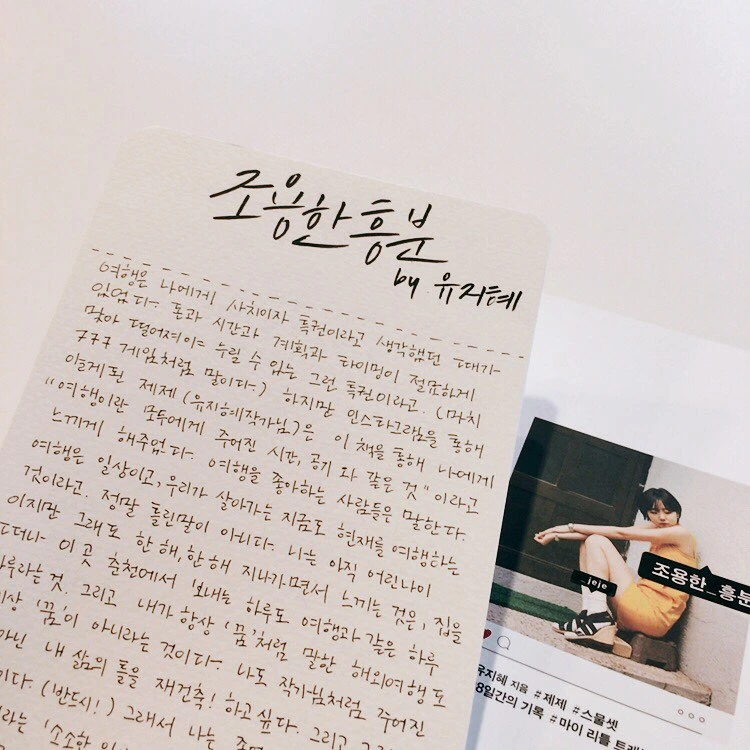 조용한 흥분
by 유지혜
여행은 나에게 사치이자 특권이라고 생각했던 때가
있었다. 돈과 시간과 계획과 타이밍이 절묘하게
맞아 떨어져야 누릴 수 있는 그런 특권이라고. (마치
777 게임처럼 말이다.) 하지만 인스타그램을 통해
알게된 제제(유지혜작가님)은 이 책을 통해 나에게
"여행이란 모두에게 주어진 시간, 공기와 같은 것"이라고
느끼게 해주었다. 여행을 좋아하는 사람들은 말한다.
여행은 일상이고, 우리가 살아가는 지금도 현재를 여행하는
것이라고. 정말 틀린말이 아니다. 나는 아직 어린나이
이지만 그래도 한 해, 한 해 지나가면서 느끼는 것은, 집을
떠나 이 곳 춘천에서 보내는 하루도 여행과 같은 하루
하루라는 것. 그리고 내가 항상 '꿈'처럼 말한 해외여행도
이상 '꿈'이 아니라는 것이다. 나도 작가님처럼 주어진
아닌 내 삶의 틀을 재건축! 하고 싶다. 그리고
이다. (반드시!) 그래서 나는
라는 '소소한
_jeje
조용한_흥분
유지혜 지음 #제제 #스물셋
8일간의 기록 #마이 리틀